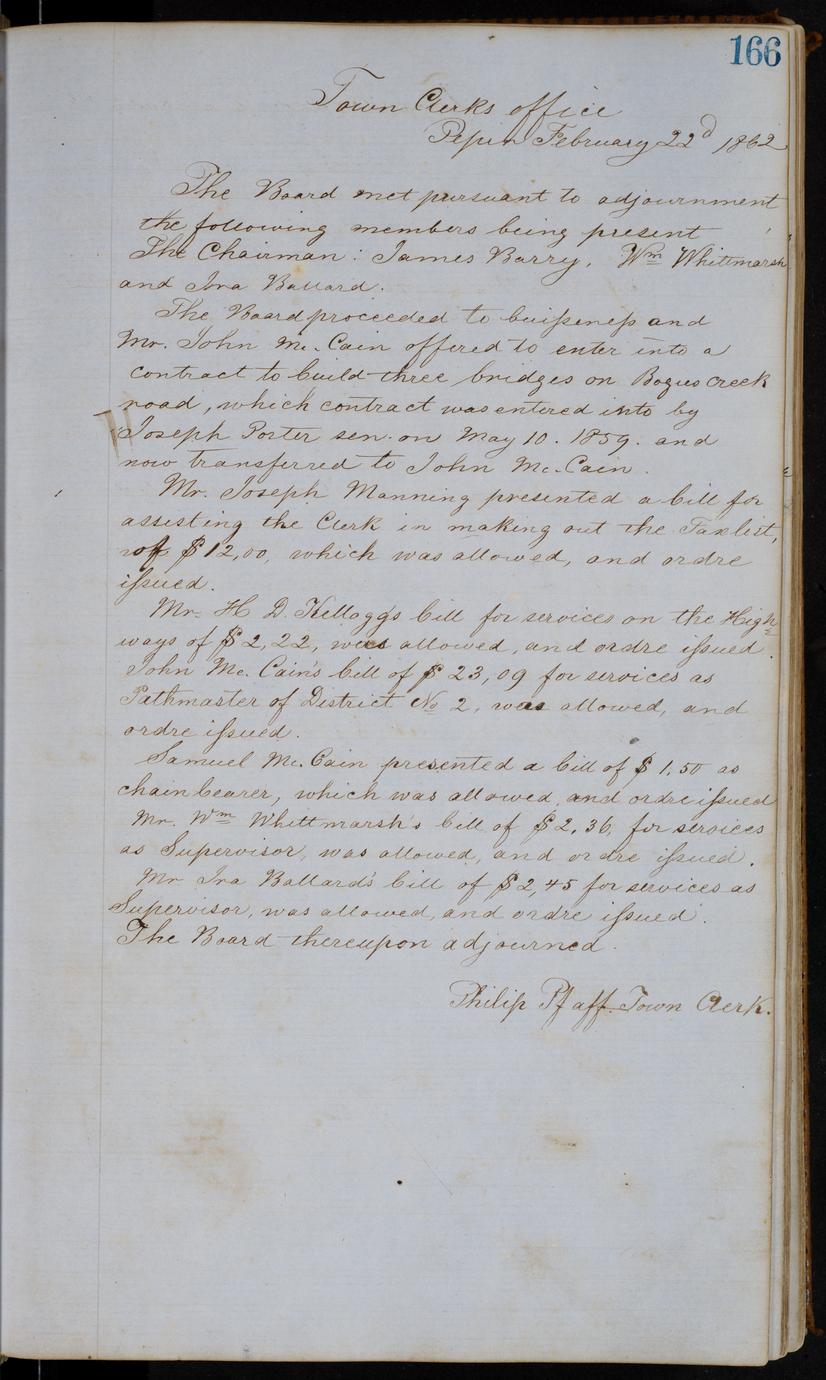 166
Town Clerks office
Pepin February 22d 1862
The Board met pursuant to adjournment
the following members being present
The Chairman: James Barry, Wm Whittmarsh
and Ira Ballard.
The Board proceeded to buißeneß and
Mr. John Mc. Cain offered to enter into a
contract to build three bridges on Bogus creek
road, which contract was entered into by
Joseph Porter sen. on May 10. 1859. and
now transferred to John Mc. Cain.
Mr. Joseph Manning presented a bill for
assisting the Clerk in making out the Taxlist,
of $12,00, which was allowed, and ordre
ißued.
Mr. H. D. Kellogg's bill for services on the High=
ways of $2,22, was allowed, and ordre ißued.
John Mc. Cain's bill of $23,09 for services as
Pathmaster of District No 2, was allowed, and
ordre ißued.
Samuel Mc. Cain presented a bill of $1,50 as
chainbearer, which was allowed and ordre ißued
Mr. Wm Whittmarsh's bill of $2,36, for services
as Supervisor, was allowed, and ordre ißued.
Mr Ira Ballard's bill of $2,45 for services as
Supervisor, was allowed, and ordre ißued.
The Board thereupon adjourned.
Philip Pfaff. Town Clerk.